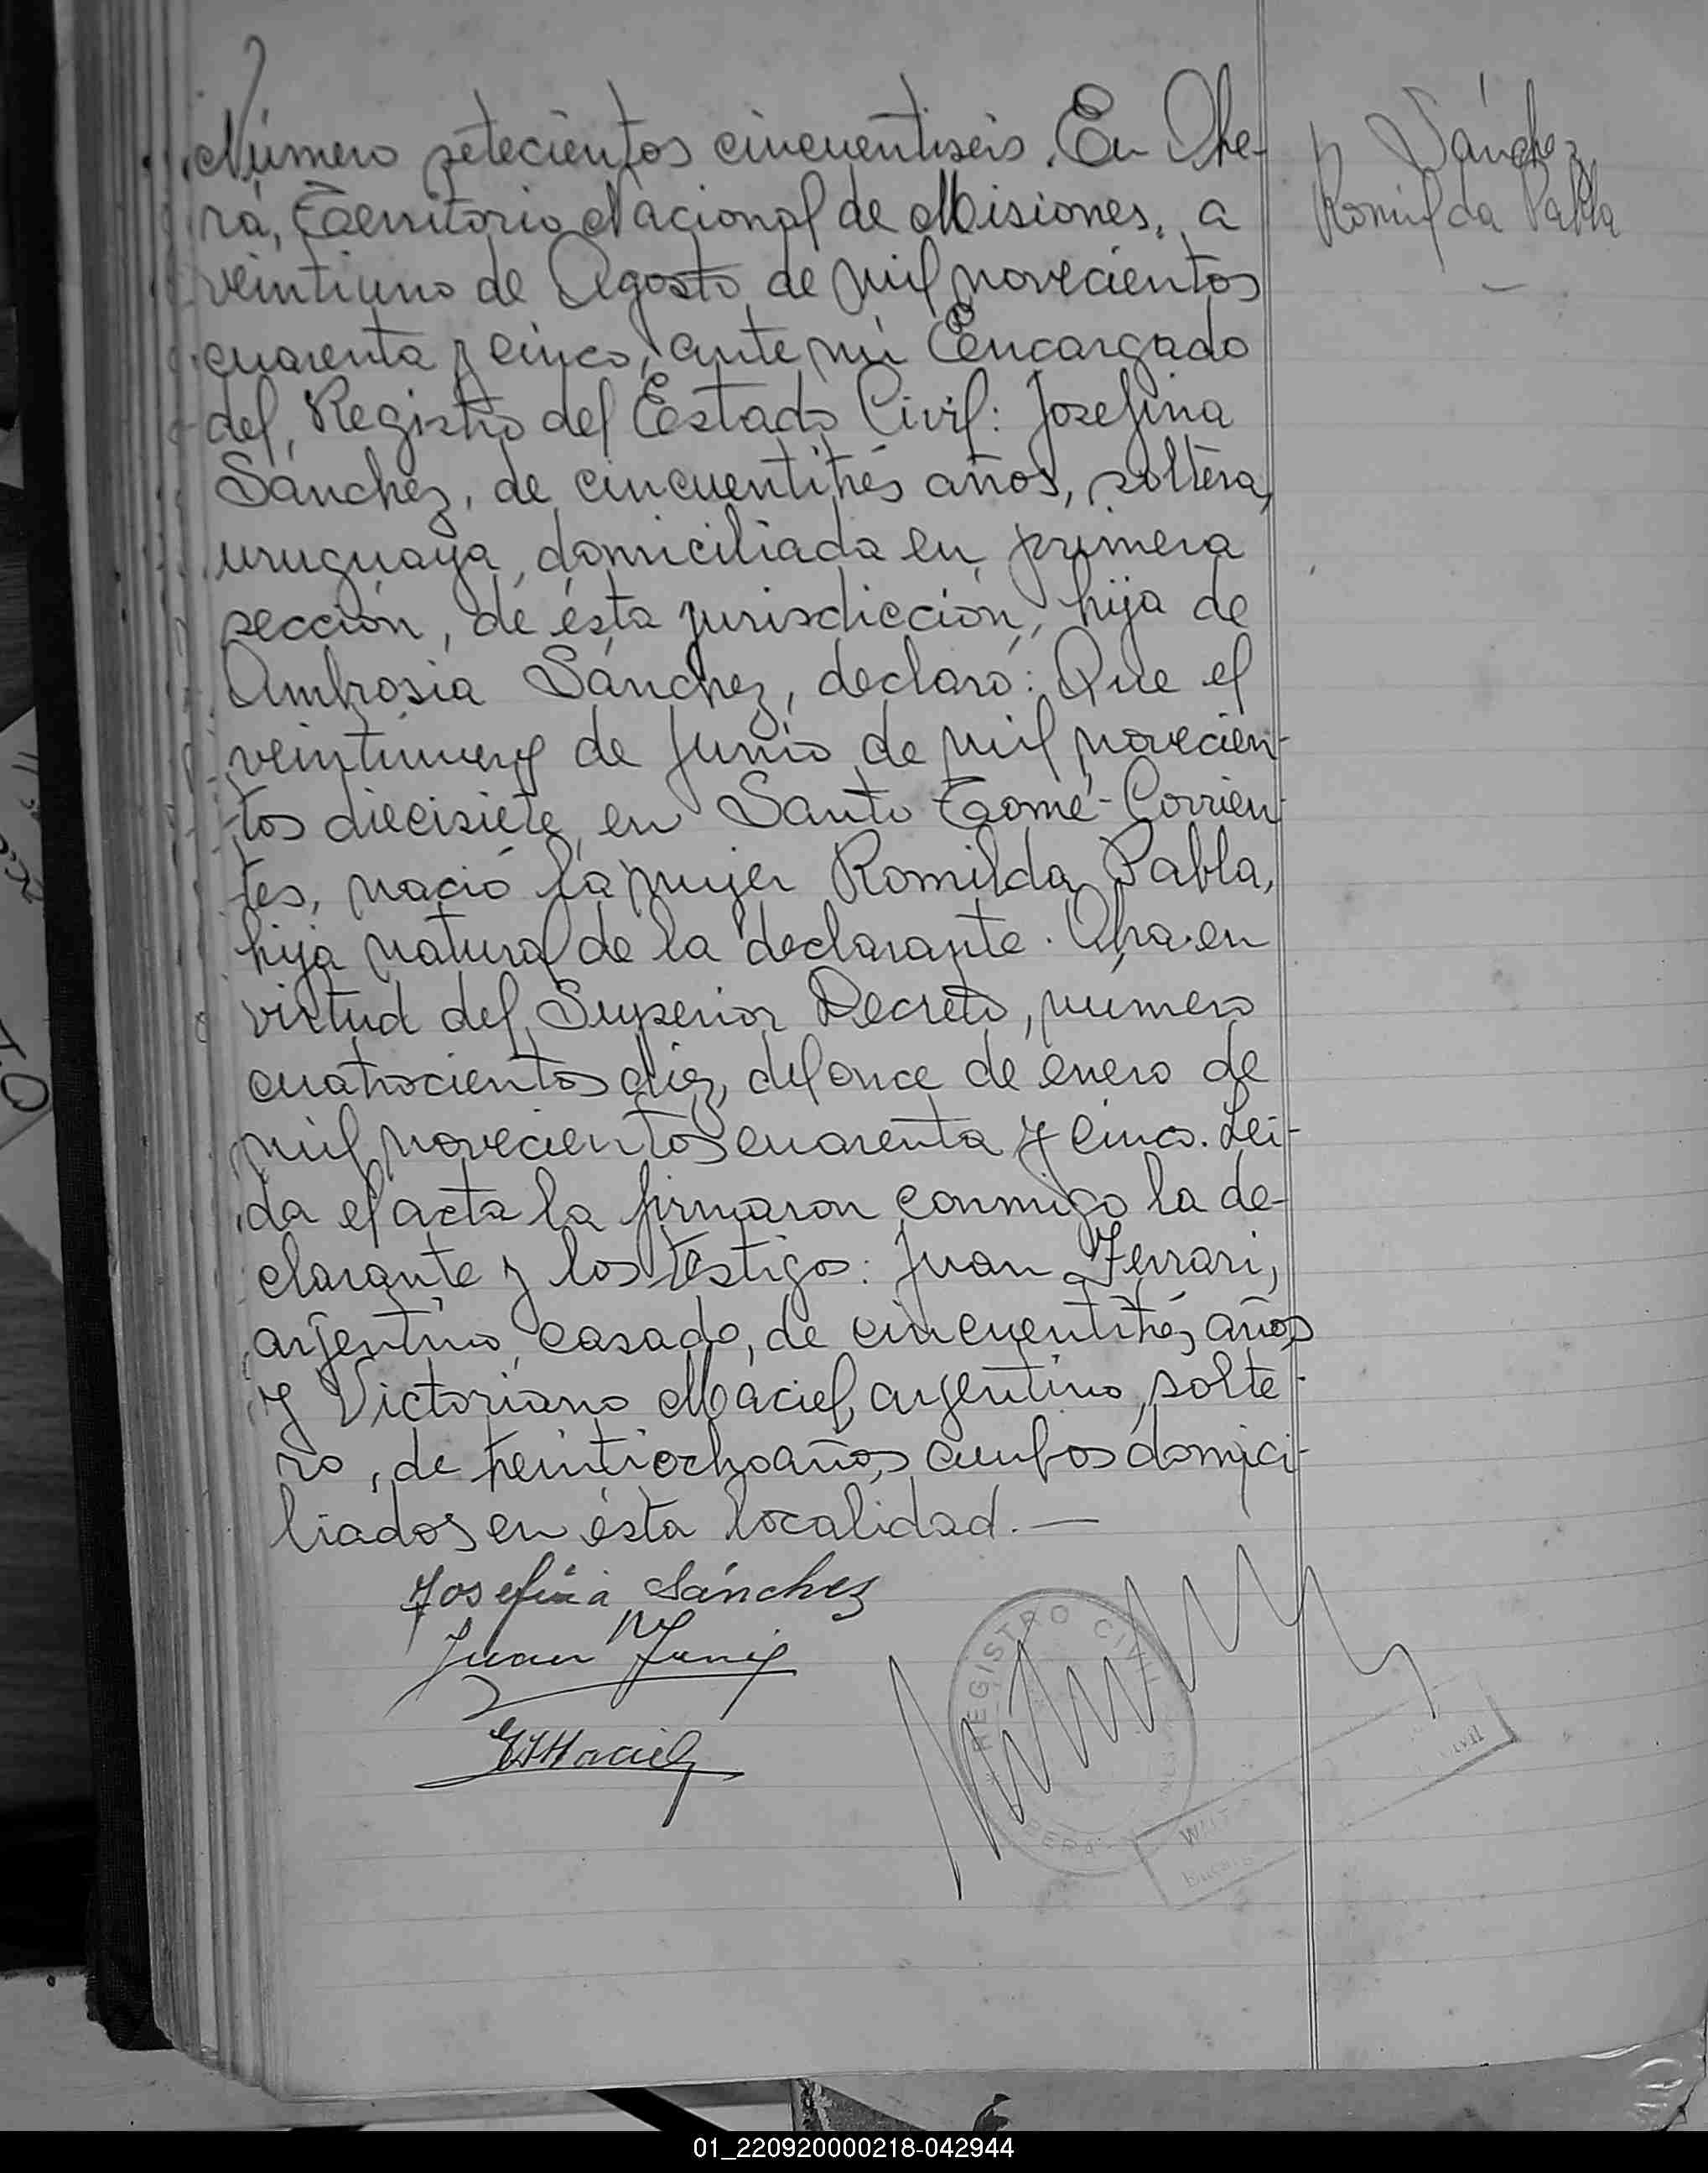 Número setecientos cincuentiseis. En Obe-
rá, Territorio Nacional de Misiones, a
veintiuno de Agosto de mil novecientos
cuarenta y cinco, ante mí Encargado
del Registro del Estado Civil: Josefina
Sánchez, de cincuentitrés años, soltera,
uruguaya, domiciliada en primera
sección, de ésta jurisdicción, hija de
Ambrosia Sánchez, declaró: Que el
de Junio de mil novecien-
tos diecisiete, en Santo Tomé-Corrien-
tes, nació la mujer Romilda Pabla,
hija natural de la declarante. en
virtud del Superior Decreto, número
cuatrocientos diez, del once de enero de
mil novecientos cuarenta y cinco. Lei-
da el acta la firmaron conmigo la de-
clarante y los testigos: Juan Ferrari,
argentino, casado, de cincuentitrés años
y Victoriano Maciel, argentino, solte-
ro, de años, ambos domici-
liados en ésta localidad.—
Sánchez
Romilda Pabla
—
Josefina Sánchez
Juan
Maciel
REGISTRO CIVIL
01_220920000218-042944